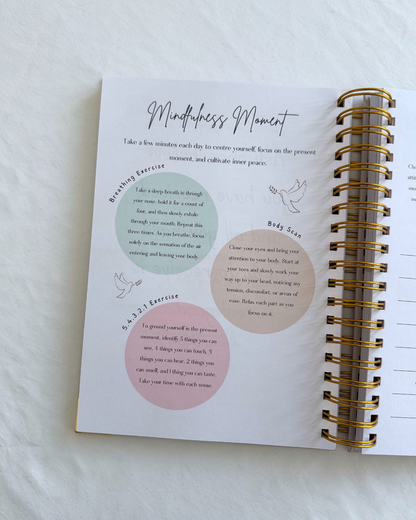 Mindfulness Moment
Take a few minutes each day to centre yourself, focus on the present
moment, and cultivate inner peace.
Breathing Exercise
Take a deep breath in through
your nose, hold it for a count of
four, and then slowly exhale
through your mouth. Repeat this
three times. As you breathe, focus
solely on the sensation of the air
entering and leaving your body.
Body Scan
Close your eyes and bring your
attention to your body. Start at
your toes and slowly work your
way up to your head, noticing any
tension, discomfort, or areas of
ease. Relax each part as you
focus on it.
5,4,3,2,1 Exercise
To ground yourself in the present
moment, identify 5 things you can
see, 4 things you can touch, 3
things you can hear, 2 things you
can smell, and 1 thing you can taste.
Take your time with each sense.